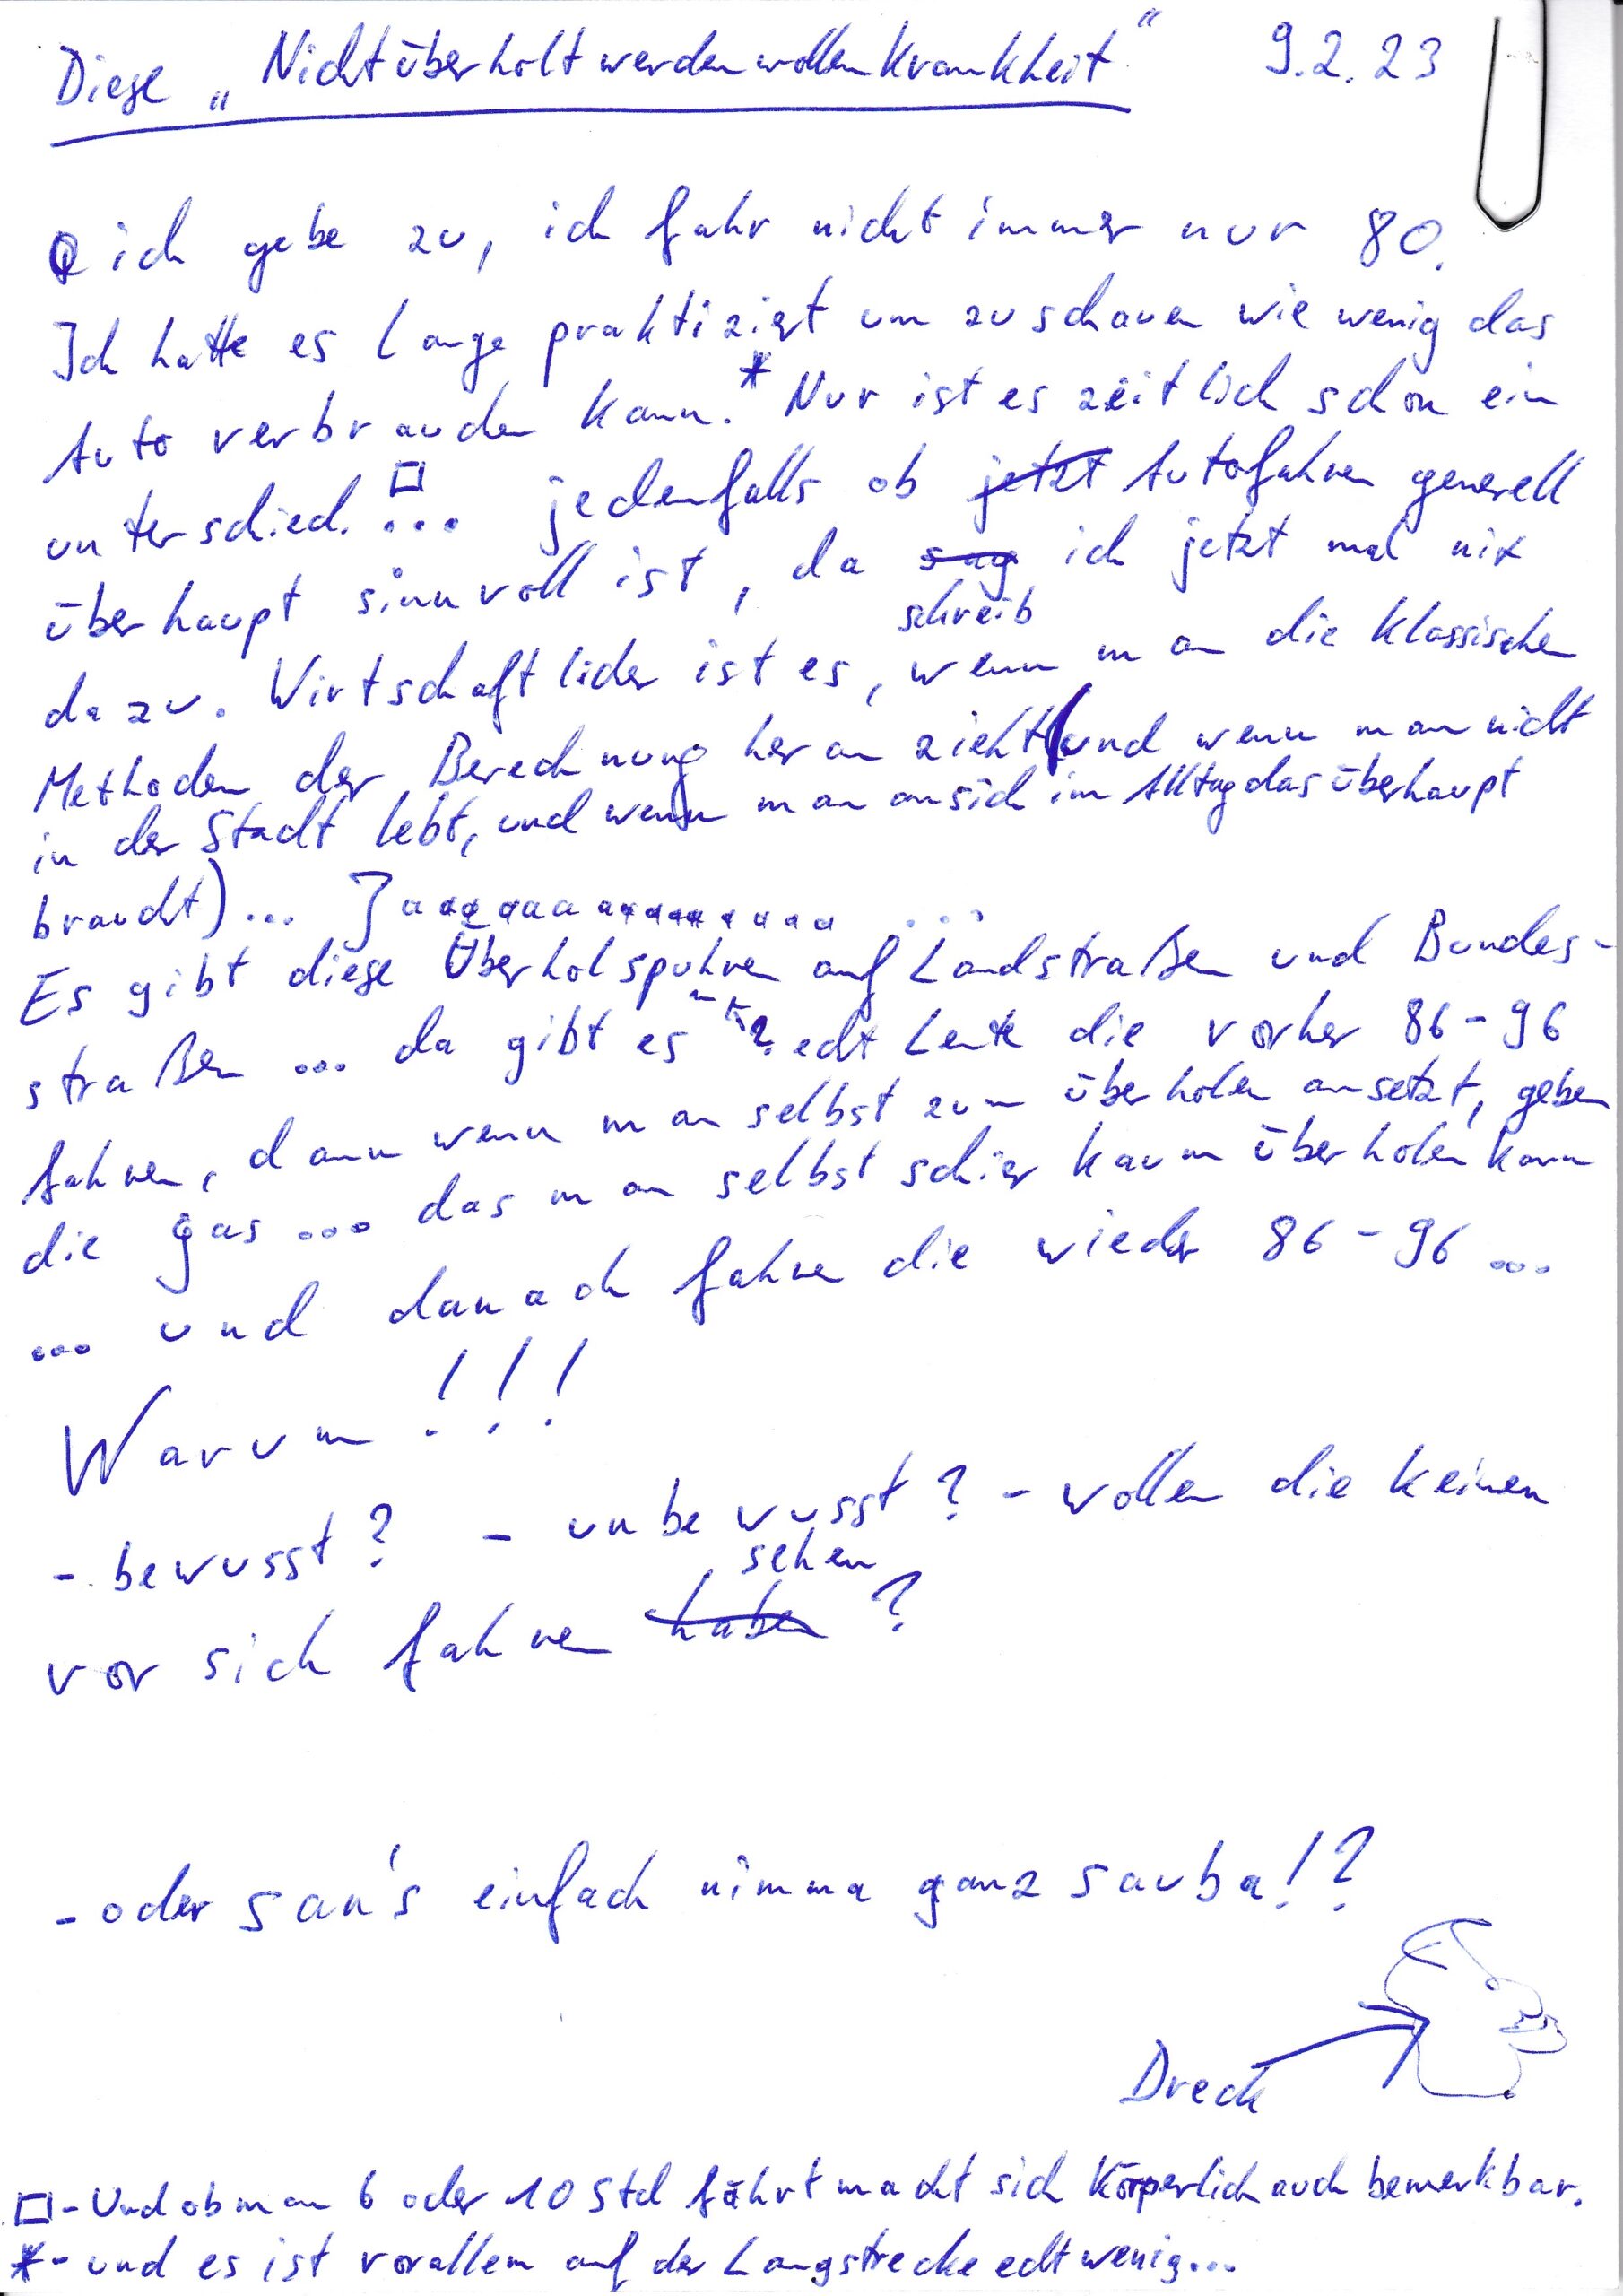 Diese „Nichtüberholtwerdenwollenkrankheit“ 9.2.23
ich gebe zu, ich fahr nicht immer nur 80.
Ich hatte es lange praktiziert um zu schauen wie wenig das
Auto verbrauchen kann.* Nur ist es zeitlich schon ein
unterschied. □ ... jedenfalls ob jetzt Autofahren generell
überhaupt sinnvoll ist, da sag ich jetzt mal nix
schreib
dazu. Wirtschaftlicher ist es, wenn man die klassischen
Methoden der Berechnung heran zieht (und wenn man nicht
in der Stadt lebt, und wenn man ansich im Alltag das überhaupt
braucht)... Jaaaaaaaaaaaaaaaa ...
Es gibt diese Überholspuhren auf Landstraßen und Bundes-
straßen ... da gibt es echt Leute die vorher 86-96
fahren, dann wenn man selbst zum überholen ansetzt, geben
die gas ... das man selbst schier kaum überholen kann
... und danach fahren die wieder 86-96 ...
Warum!!!
- bewusst? - unbewusst? - wollen die keinen
sehen
vor sich fahren haben ?
- oder san's einfach nimma ganz sauba!?
Dreck
□ - Und ob man 6 oder 10 Std fährt macht sich körperlich auch bemerkbar.
* - und es ist vorallem auf der Langstrecke echt wenig...